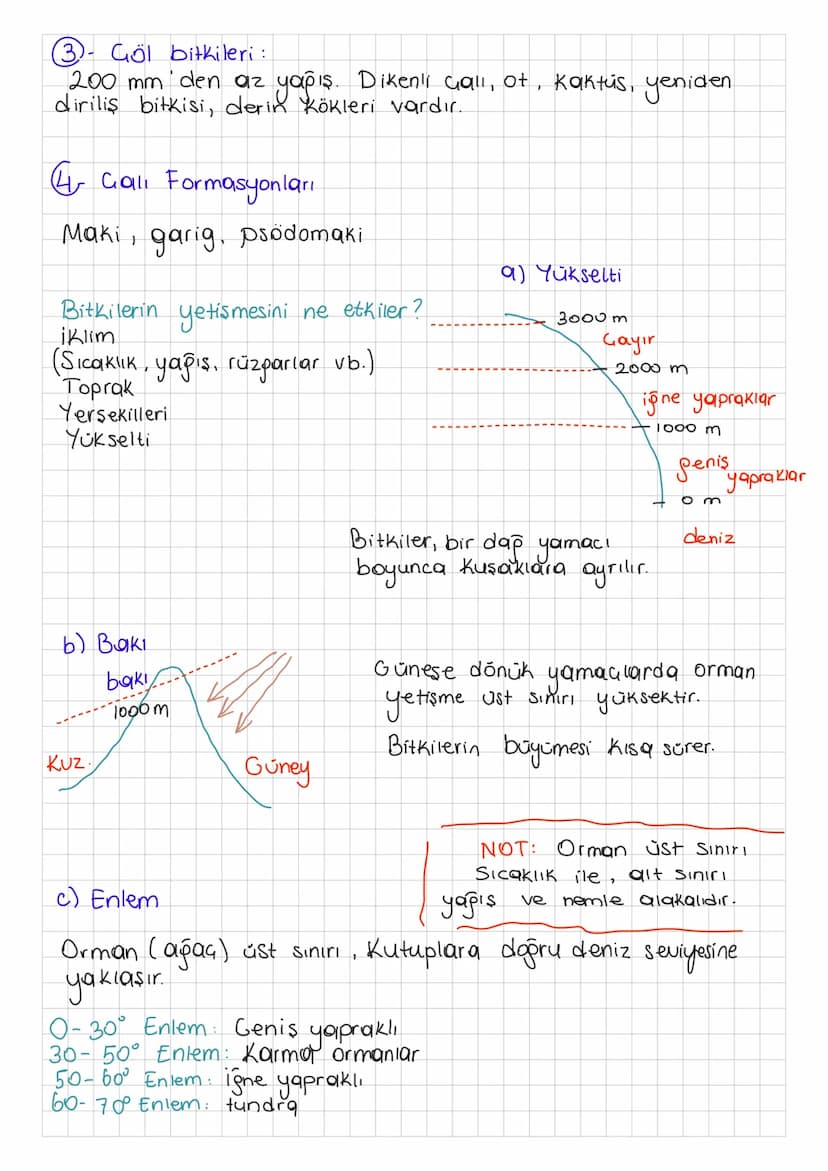 3- Göl bitkileri:
200 mm'den az yağış. Dikenli çalı, ot, kaktüs, yeniden
diriliş bitkisi, derin kökleri vardır.
4- Çalı Formasyonları
Maki, garig, psödomaki
a) Yükselti
Bitkilerin yetişmesini ne etkiler?
İklim
(Sıcaklık, yağış, rüzgarlar vb.)
Toprak
Yerşekilleri
Yükselti
3000 m
Çayır
2000 m
iğne yapraklar
1000 m
geniş
yapraklar
0 m
deniz
Bitkiler, bir dağ yamacı
boyunca kuşaklara ayrılır.
b) Bakı
bakı
1000 m
Kuz.
Güney
Güneşe dönük yamaçlarda orman
yetişme üst sınırı yüksektir.
Bitkilerin büyümesi kısa sürer.
NOT: Orman üst sınırı
sıcaklık ile, alt sınırı
yağış ve nemle alakalıdır.
c) Enlem
Orman (ağaç) üst sınırı, kutuplara doğru deniz seviyesine
yaklaşır.
0-30° Enlem: Geniş yapraklı
30-50° Enlem: Karma ormanlar
50-60° Enlem: iğne yapraklı
60-70° Enlem: tundra